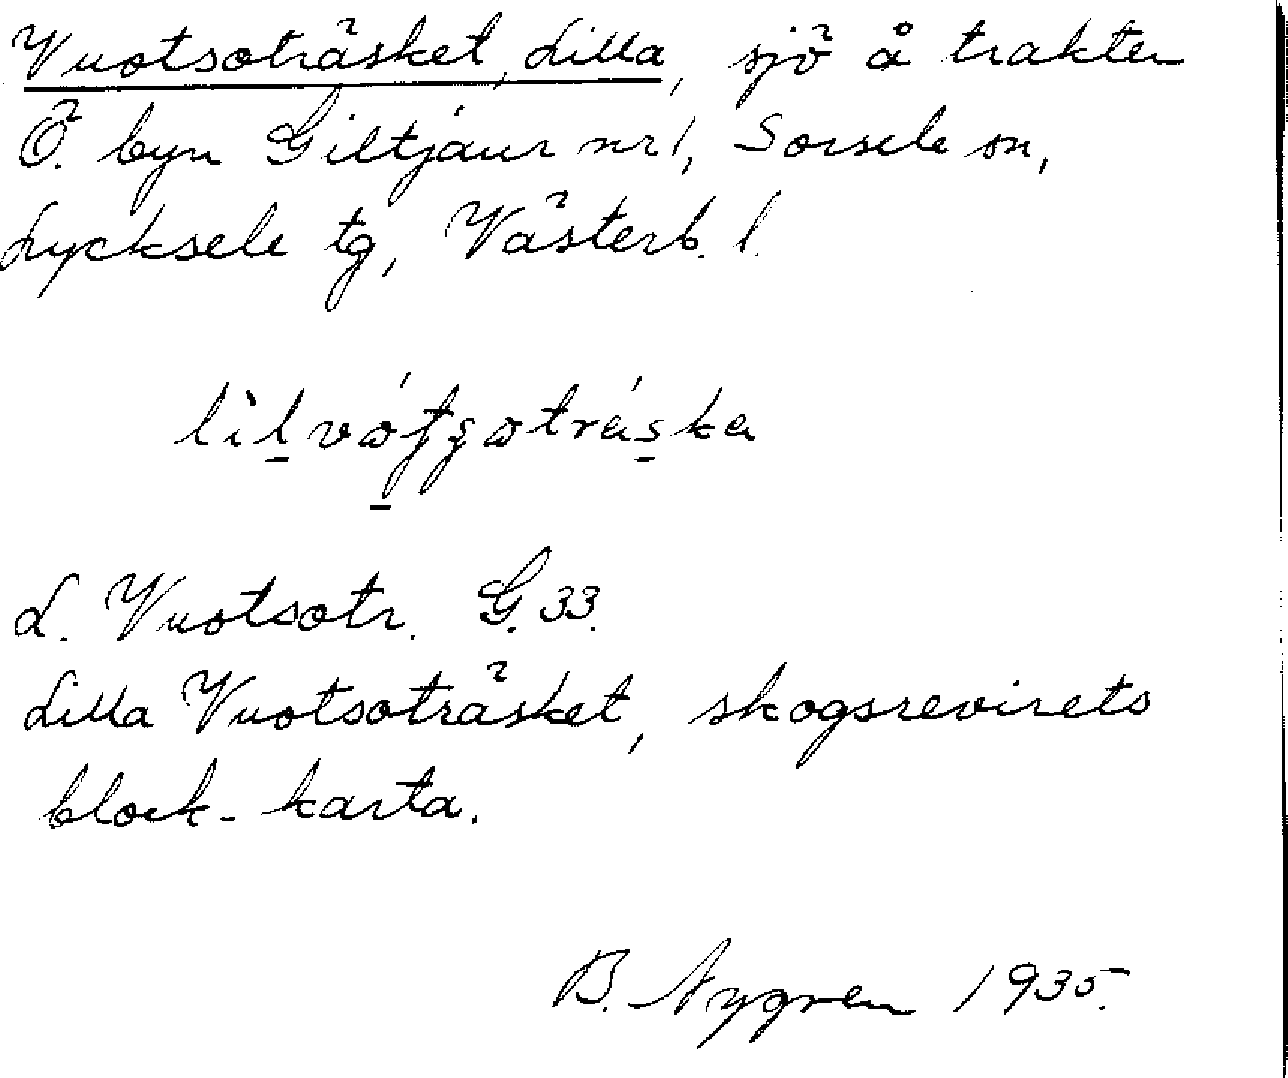 Vuotsoträsket, Lilla, sjö å trakten
Ö. byn Giltjaur nr 1, Sorsele sn,
Lycksele tg, Västerb. l.
L. Vuotsotr. G. 33.
Lilla Vuotsoträsket, skogsrevirets
block-karta.
B. Nygren 1935.